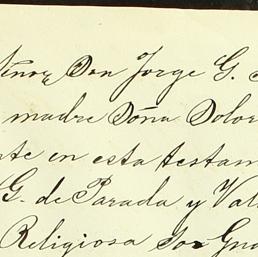 Don Jorge G.
madre Doña Dolor
nte en esta testam
G. de Parada y Val
Religiosa Sor Gua